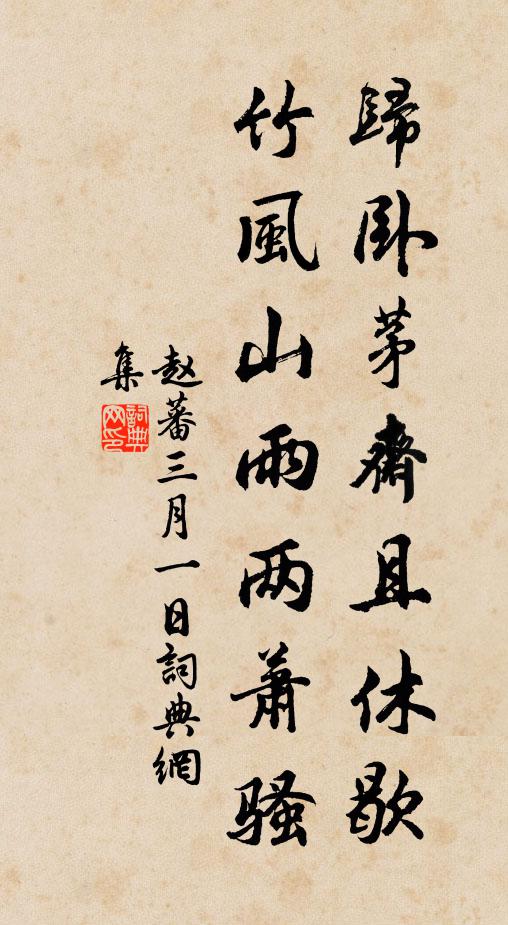 歸卧茅齋且休歇
竹風山雨两蕭骚
赵蕃三月一日詞典網
集
詞典网印